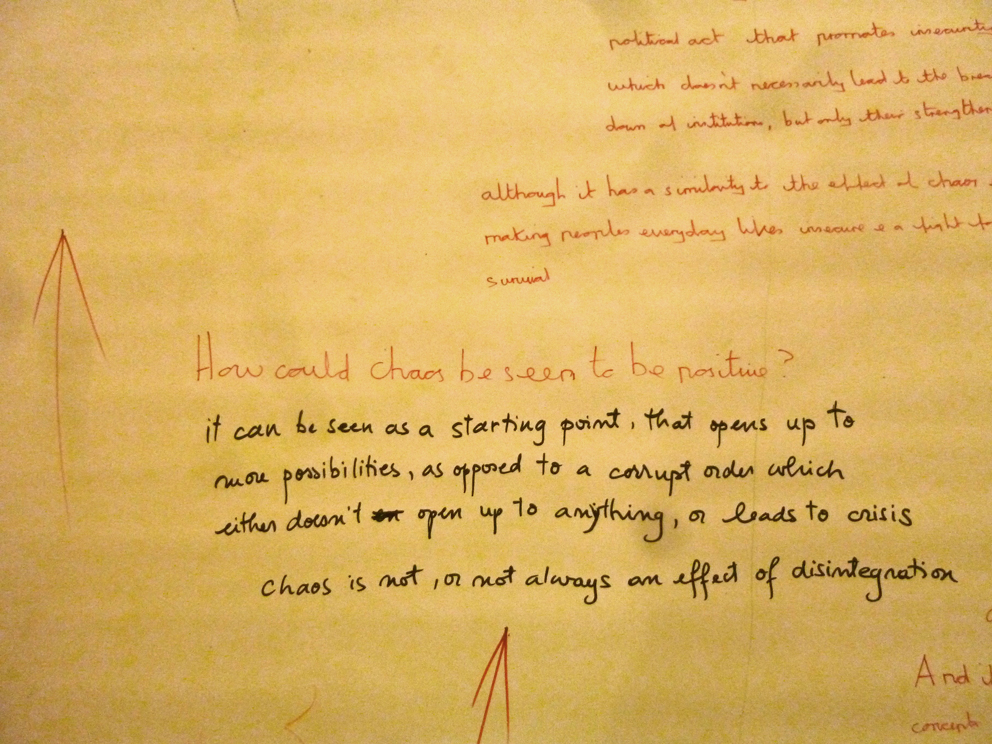 political act that promotes
which doesn't necessarily lead to the
down of institutions, but only their
although it has a similarity to the effect of chaos
making peoples everyday lifes insecure & a fight
survival
How could chaos be seen to be positive?
it can be seen as a starting point, that opens up to
more possibilities, as opposed to a corrupt order which
either doesn't open up to anything, or leads to crisis
chaos is not, or not always an effect of disintegration
And
concept